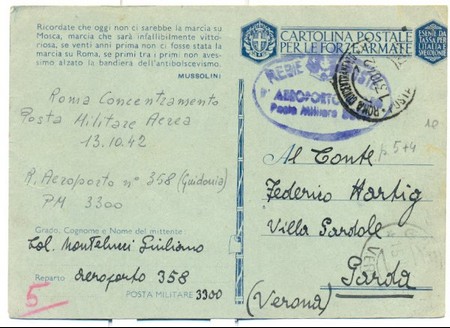 Ricordate che oggi non ci sarebbe la marcia su
Mosca, marcia che sarà infallibilmente vitto-
riosa, se venti anni prima non ci fosse stata
la marcia su Roma, se primi tra i primi non aves-
simo alzato la bandiera dell'antibolscevismo.
MUSSOLINI
CARTOLINA POSTALE
PER LE FORZE ARMATE
ESENTE DA
TASSA PER
L'ITALIA E
REGIE POSTE
AEROPORTO
Posta Militare
ROMA
Roma Concentramento
Posta Militare Aerea
13.10.42
R. Aeroporto n° 358 (Guidonia)
PM 3300
p. 5+4
Al Conte
Federico Hartig
Villa Pardole
Garda
(Verona)
Grado, Cognome e Nome del mittente
Col. Montelucci Giuliano
Reparto aeroporto 358
POSTA MILITARE 3300
5